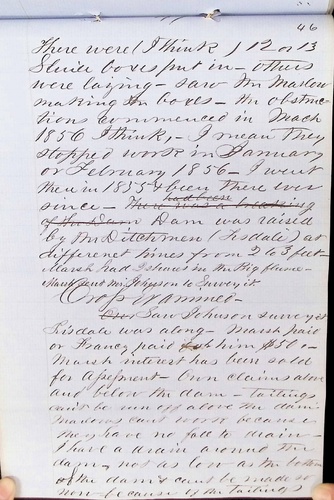 46
There were (I think) 12 or 13
Sluice boxes put in - others
were laying - saw Mr Marlow
making boxes - the obstruc
tions commenced in March
1856 I think, - I mean they
stopped work in January
or February 1856 - I went
there in 1855 & been there ever
since - There had been a breaking
of the Dam Dam was raised
by the Ditchmen (Tisdale) at
different times from 2 to 3 feet -
Marsh had in the Big flume -
Marsh sent Mr Johnson to Survey it
Cross Examined -
Saw Johnson survey it
Tisdale was along - Marsh paid
or Francis paid him $50 -
Marsh interest has been sold
for Assessment - Own claims above
and below the dam - tailings
can't be run off above the dam
cant work because
they have no fall to drain -
I have a drain around the
dam, not as low as the bottom
of the dam & can't be made so
now because of the tailings